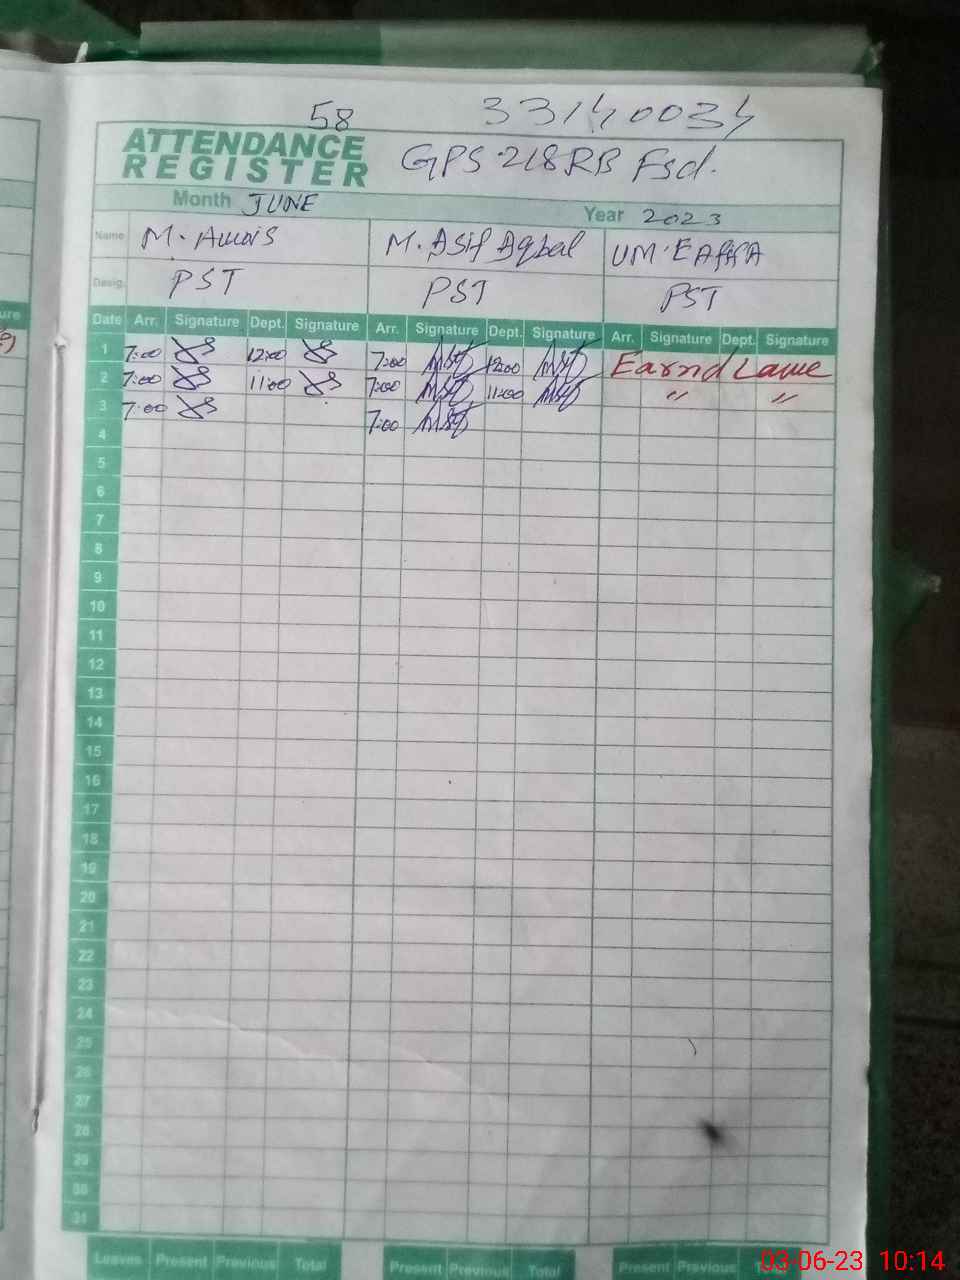 58 33140034
ATTENDANCE
REGISTER GPS 218 RB Fsd.
Month JUNE Year 2023
Name M. Awais M. Asif Iqbal UM. E
Desig. PST PST PST
ure Date Arr. Signature Dept. Signature Arr. Signature Dept. Signature Arr. Signature Dept. Signature
1 7:00 12:00 7:00 12:00 Earnd Lawe
2 7:00 11:00 7:00 11:00 " "
3 7:00 7:00
4
5
6
7
8
9
10
11
12
13
14
15
16
17
18
19
20
21
22
23
24
25
26
27
28
29
30
31
Leaves Present Previous Total Present Previous Total Present Previous
03-06-23 10:14